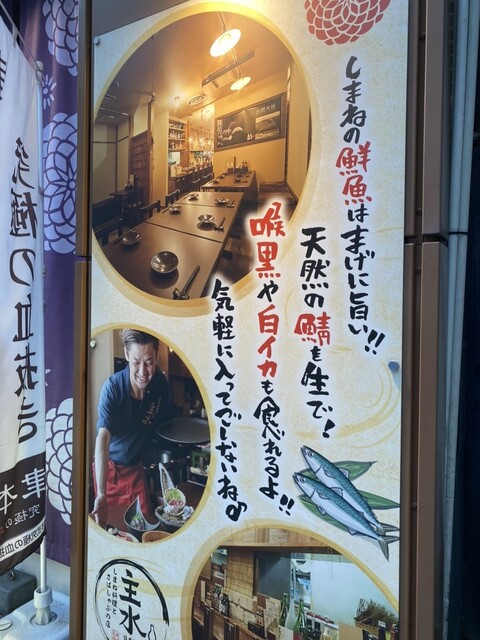 しまねの鮮魚はまげに旨い!!
天然の鯖を生で!
喉黒や白イカも食べれるよ!!
気軽に入ってごしないね♪
しまね料理と
さばしゃぶの店
主水
究極の血抜き